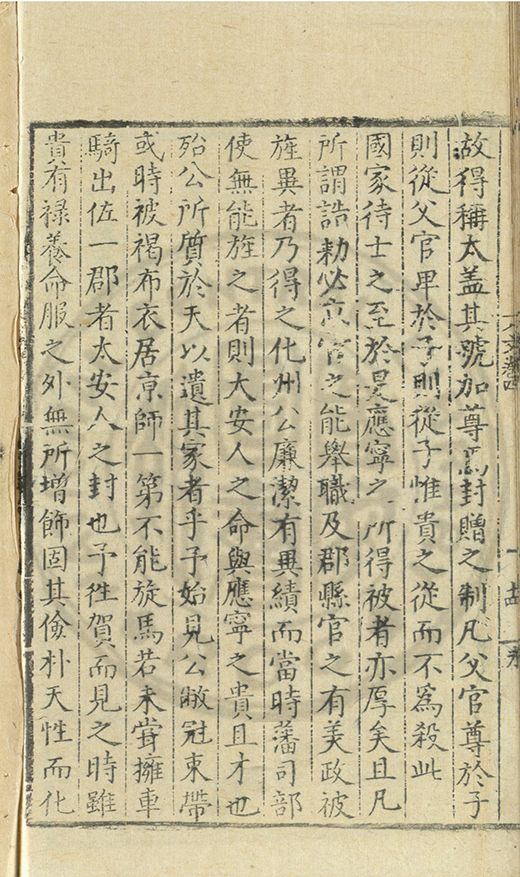 故得稱太盖其號加尊焉封贈之制凡父官尊於子
則從父官卑於子則從子惟貴之從而不爲殺此
國家待士之至於是應寧之所得被者亦厚矣且凡
所謂誥勑必京官之能舉職及郡縣官之有美政被
旌異者乃得之化州公廉潔有異績而當時藩司部
使無能旌之者則大安人之命與應寧之貴且才也
殆公所質於天以遺其家者乎予始見公敝冠束帶
或時被褐布衣居京師一第不能旋馬若未甞擁車
騎出佐一郡者太安人之封也予徃賀而見之時雖
貴有禄養命服之外無所增飾固其儉朴天性而化